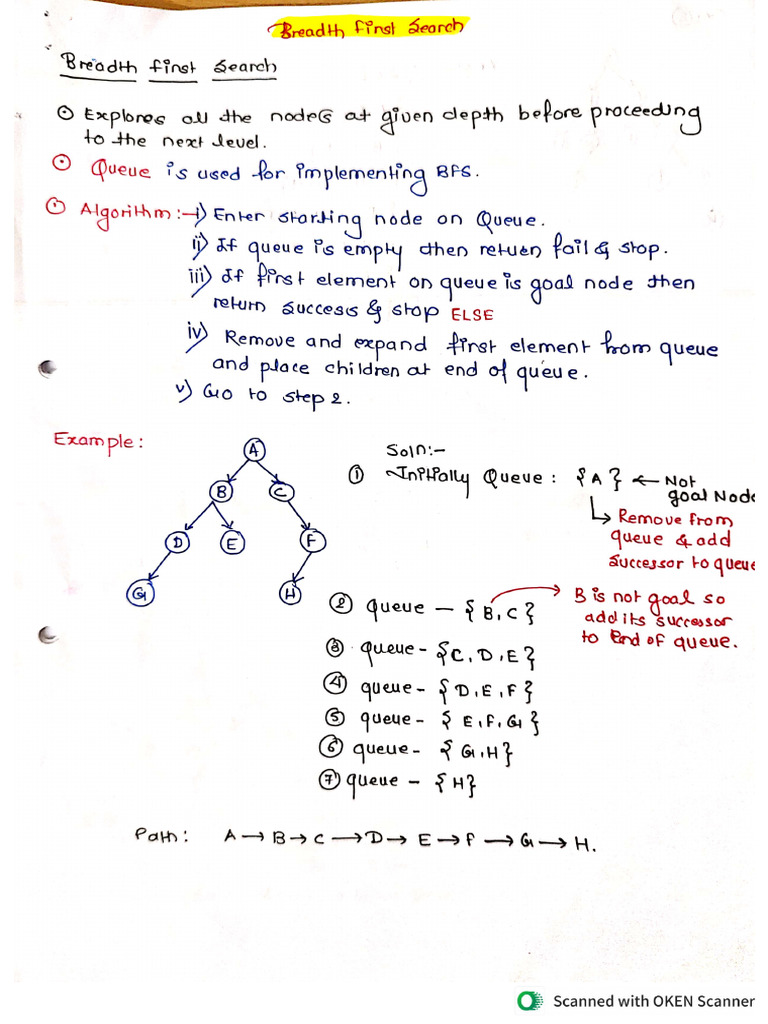 Breadth First Search
Breadth First Search
⊙ Explores all the nodes at given depth before proceeding
to the next level.
⊙ Queue is used for implementing BFS.
⊙ Algorithm:- i) Enter starting node on Queue.
ii) If queue is empty then return fail & stop.
iii) If first element on queue is goal node then
return success & stop ELSE
iv) Remove and expand first element from queue
and place children at end of queue.
v) Go to step 2.
Example:
A
B C
D E F
G H
Soln:-
① Initially Queue: {A} ← Not
goal Node
↳ Remove from
queue & add
successor to queue
② queue - {B, C}
B is not goal so
add its successor
to end of queue.
③ queue - {C, D, E}
④ queue - {D, E, F}
⑤ queue - {E, F, G}
⑥ queue - {G, H}
⑦ queue - {H}
Path: A → B → C → D → E → F → G → H.
Scanned with OKEN Scanner